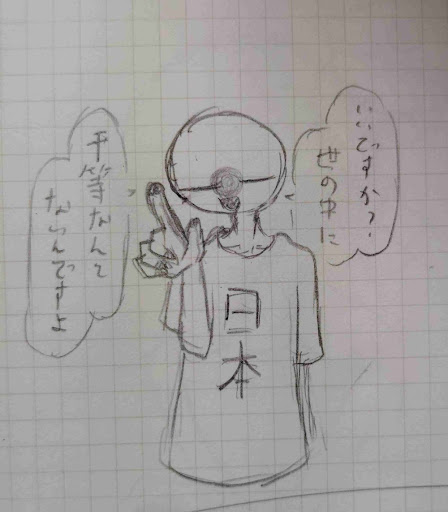 いいですか？
世の中に
平等なんて
ないんですよ
日本